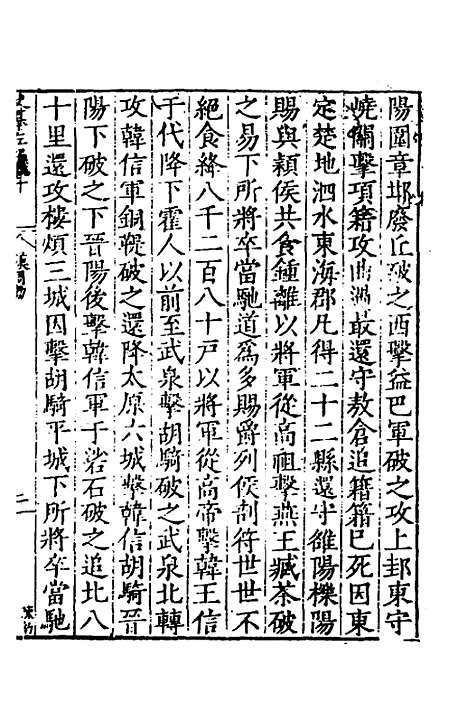 陽圍章邯廢丘破之西擊益巴軍破之攻上邽東守
嶢關擊項籍攻曲遇最還守敖倉追籍籍已死因東
定楚地泗水東海郡凡得二十二縣還守雒陽櫟陽
賜與穎侯共食鍾離以將軍從高祖擊燕王臧荼破
之易下所將卒當馳道爲多賜爵列侯剖符世世不
絕食絳八千二百八十戸以將軍從高帝擊韓王信
于代降下霍人以前至武泉擊胡騎破之武泉北轉
攻韓信軍銅鞮破之還降太原六城擊韓信胡騎晉
陽下破之下晉陽後擊韓信軍于硰石破之追北八
十里還攻樓煩三城因擊胡騎平城下所將卒當馳